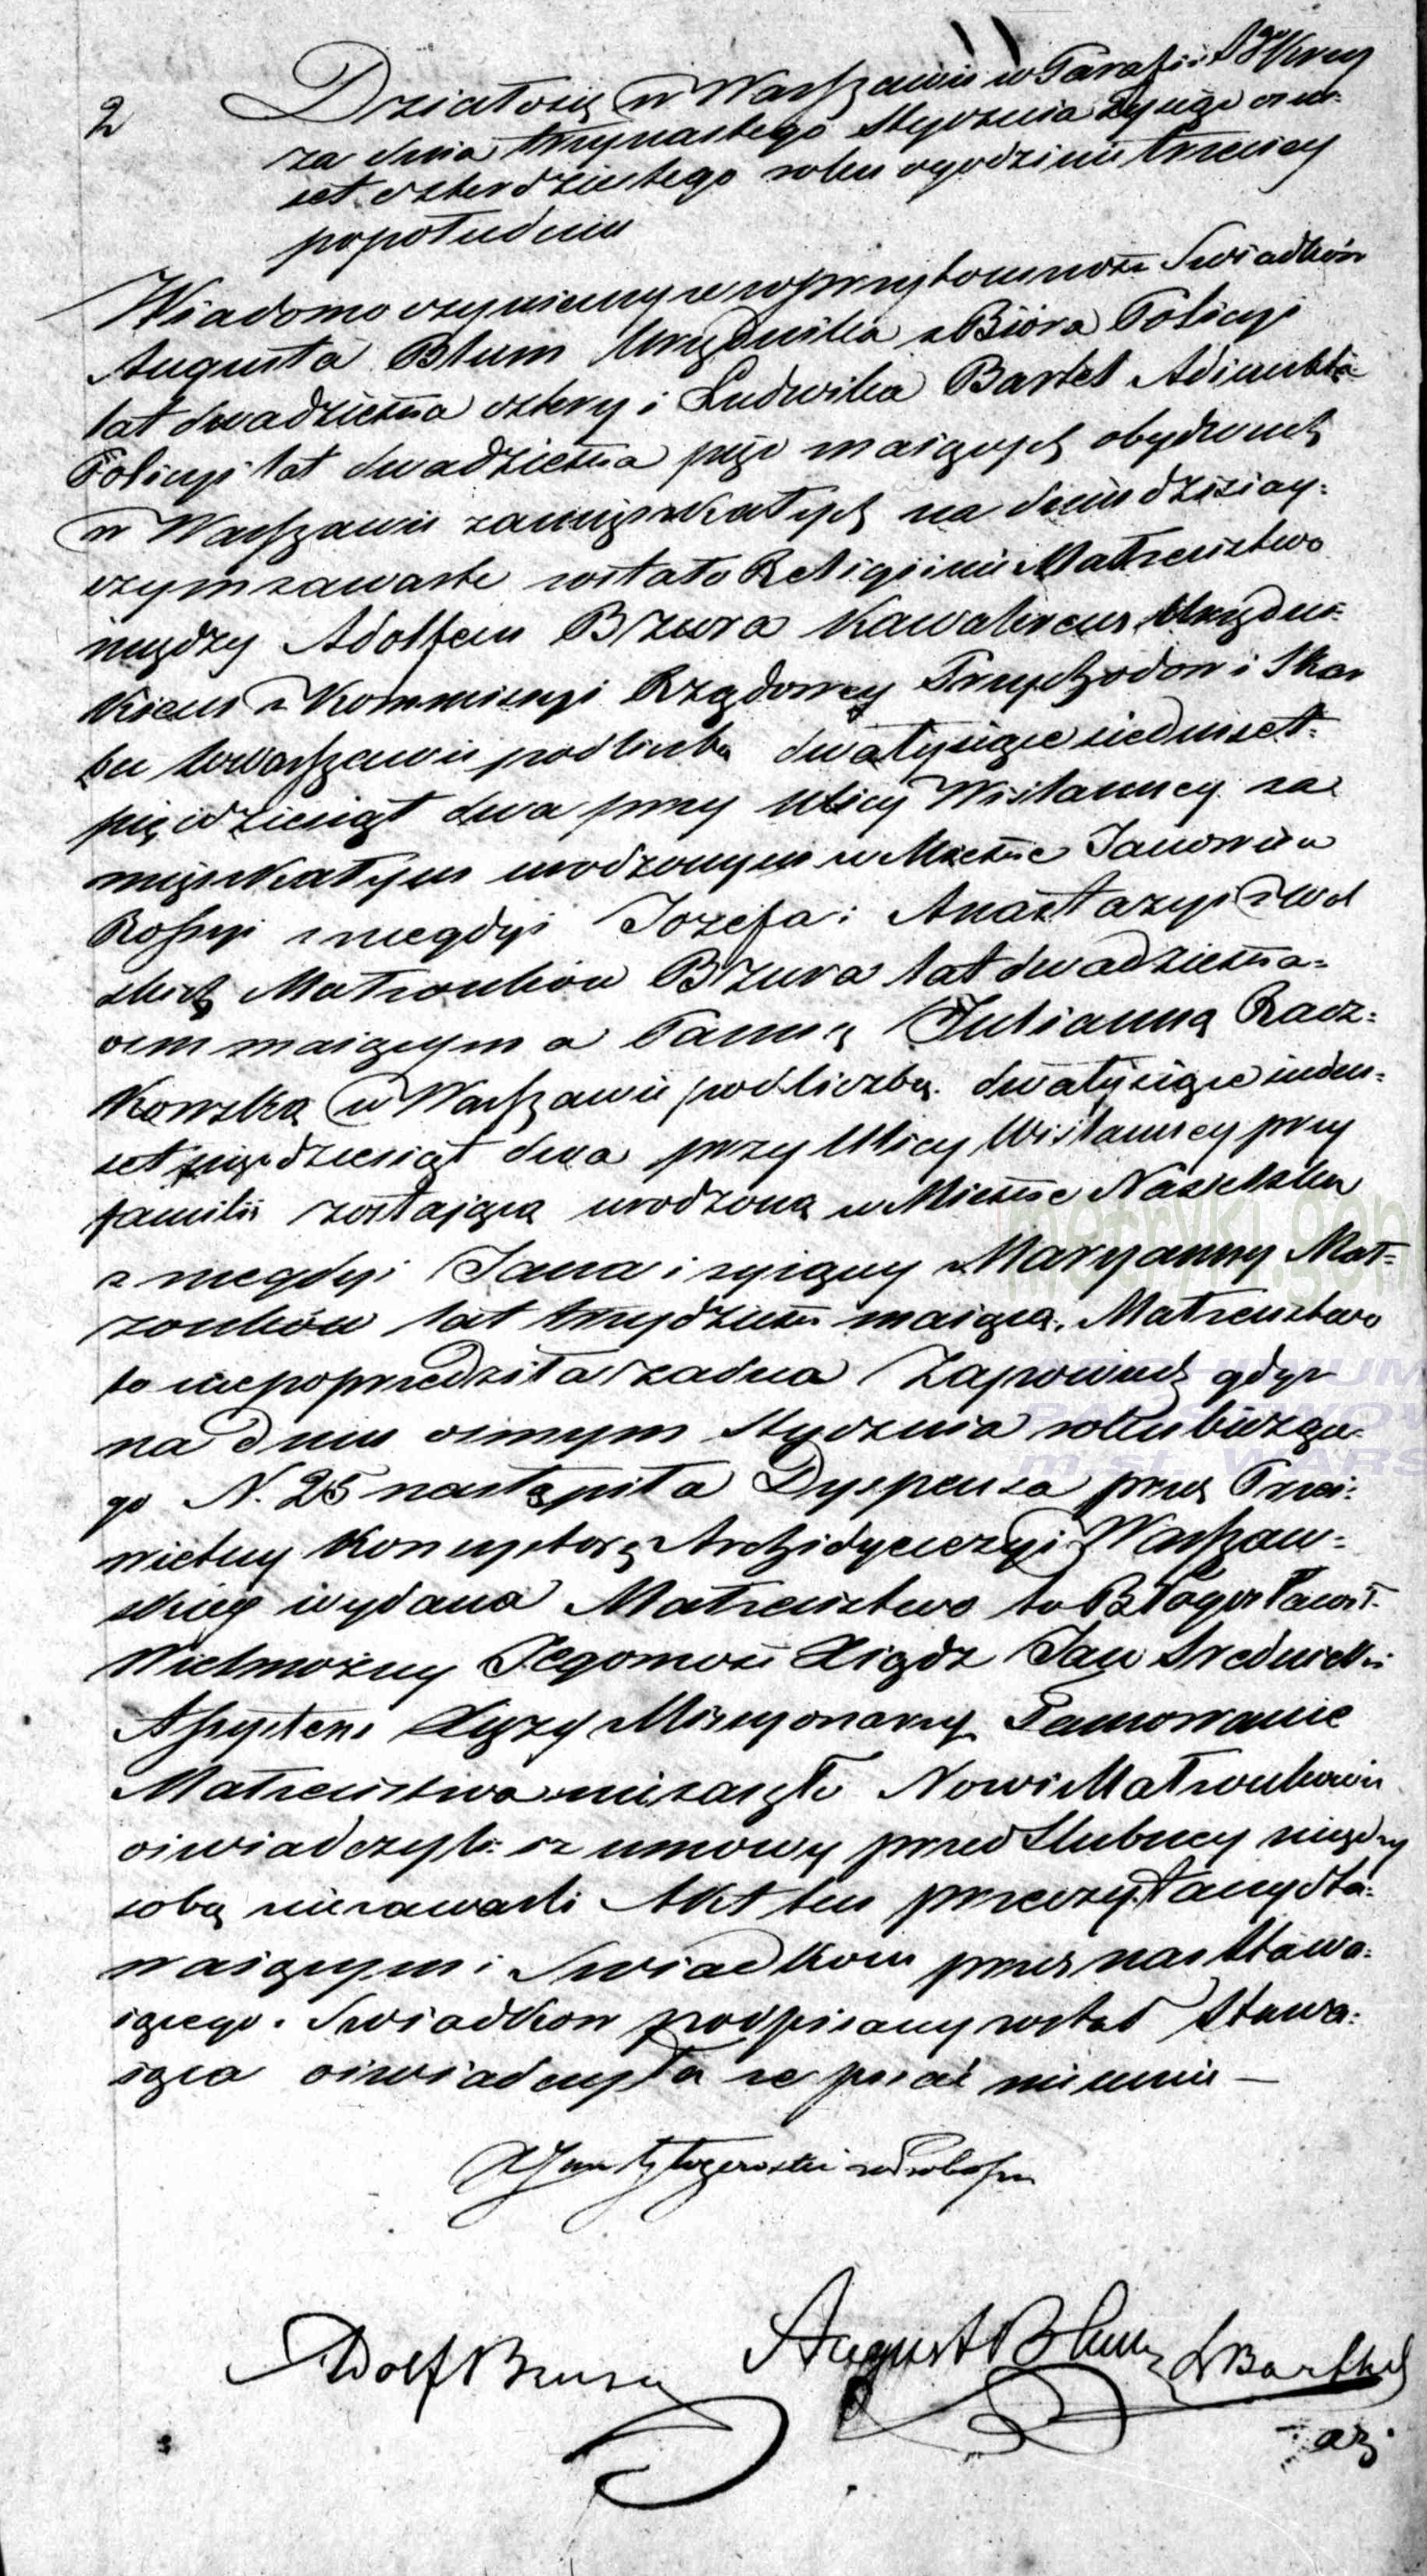 2
Działo się w Warszawie w Parafii Sgo Krzy
za dnia trzynastego Stycznia tysiąc ośm-
set czterdziestego roku o godzinie trzeciey
po południu
Wiadomo czyniemy że w przytomności Swiadków
Augusta Blum Urzędnika z Bióra Policyi
lat dwadzieścia cztery i Ludwika Bartel Adiunkta
Policyi lat dwadzieścia pięć maiących obydwuch
w Warszawie zamięszkałych na dniu dzisiay-
szym zawarte zostało Religiinie Małżeństwo
między Adolfem Bzura Kawalerem Urzędni-
kiem z Kommissyi Rządowey Przychodow i Skar
bu w Warszawie pod liczbą dwatysiące siedmset-
pięćdziesiąt dwa przy Ulicy Wiślanney za-
mięszkałym urodzonym w Mieście Janowie w
Rossyi z niegdyś Jozefa i Anastazyi z Wol
skich Małżonków Bzura lat dwadzieścia-
ośm maiącym a Panną Julianną Racz-
kowską w Warszawie pod liczbą dwatysiące siedm-
set pięćdziesiąt dwa przy Ulicy Wiślanney przy
familii zostającą urodzoną w Mieście Nasielsku
z niegdyś Jana i żyiącey Maryanny Mał-
żonków lat trzydzieści maiącą. Małżeństwo
to niepoprzedziła żadna Zapowiedź gdyż
na dniu ósmym Stycznia roku bieżące-
go N. 25 nastąpiła Dyspensa przez Prze-
świetny Konsystorz Archidyecezyi Warszaw-
skiey wydana Małżeństwo to Błogosławił
Wielmożny Jegomość Xiądz Jan Srednicki
Assystens Xięży Missyonarzy Tamowanie
Małżeństwa nie zaszło Nowi Małżonkowie
oświadczyli iż umowy przedślubney między
sobą niezawarli Akt ten przeczytany sta-
waiącym i Swiadkom przez nas stawa-
iącego. Swiadkow podpisany został Stawa-
iąca oświadczyła że pisać nie umie —
Adolf Bzura
August Blum
L Barthel